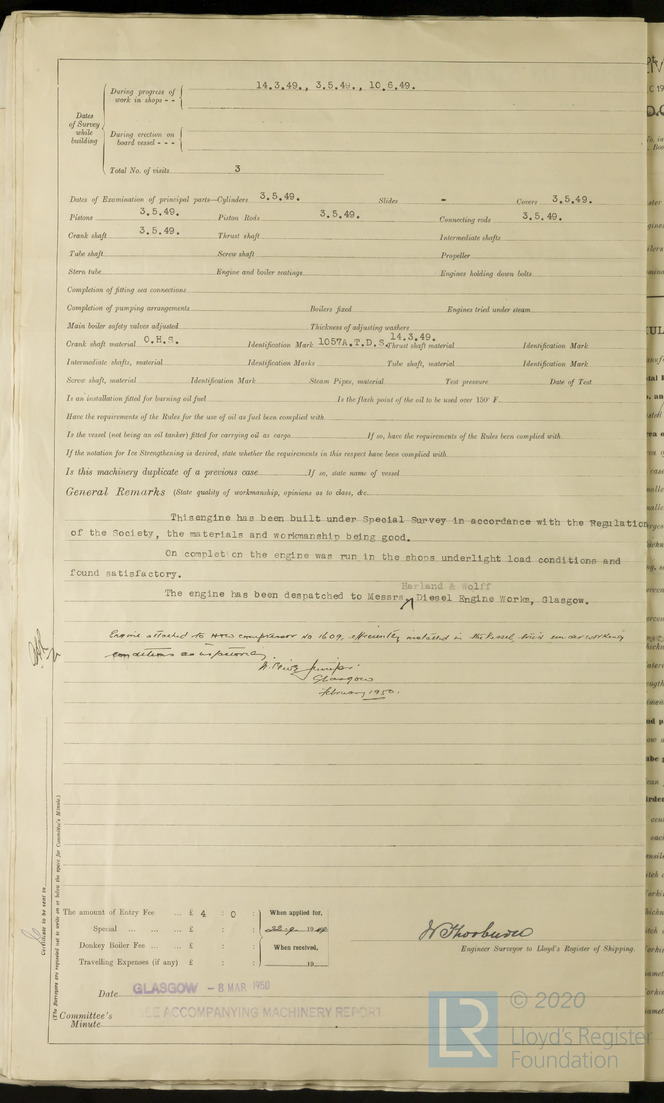 During progress of work in shops - - 14.3.49., 3.5.49., 10.6.49.
Dates of Survey while building
During erection on board vessel - - -
Total No. of visits 3
Dates of Examination of principal parts—Cylinders 3.5.49. Slides - Covers 3.5.49.
Pistons 3.5.49. Piston Rods 3.5.49. Connecting rods 3.5.49.
Crank shaft 3.5.49. Thrust shaft Intermediate shafts
Tube shaft Screw shaft Propeller
Stern tube Engine and boiler seatings Engines holding down bolts
Completion of fitting sea connections
Completion of pumping arrangements Boilers fixed Engines tried under steam
Main boiler safety valves adjusted Thickness of adjusting washers
Crank shaft material O.H.S. Identification Mark 1057A.T.D.S. 14.3.49. Thrust shaft material Identification Mark
Intermediate shafts, material Identification Marks Tube shaft, material Identification Mark
Screw shaft, material Identification Mark Steam Pipes, material Test pressure Date of Test
Is an installation fitted for burning oil fuel Is the flash point of the oil to be used over 150° F.
Have the requirements of the Rules for the use of oil as fuel been complied with
Is the vessel (not being an oil tanker) fitted for carrying oil as cargo If so, have the requirements of the Rules been complied with
If the notation for Ice Strengthening is desired, state whether the requirements in this respect have been complied with
Is this machinery duplicate of a previous case If so, state name of vessel
General Remarks (State quality of workmanship, opinions as to class, &c.
Thisengine has been built under Special Survey in accordance with the Regulation
of the Society, the materials and workmanship being good.
On completion the engine was run in the shops underlight load conditions and
found satisfactory.
Harland & Wolff
The engine has been despatched to Messrs Diesel Engine Works, Glasgow.
Engine attached to compressor No 1609, efficiently installed in the vessel, tried under working
conditions
Glasgow
February 1950.
Certificate to be sent to
(The Surveyors are requested not to write on or below the space for Committee's Minute.)
The amount of Entry Fee ... £ 4 : 0 : When applied for,
Special ... £ : : 19
Donkey Boiler Fee ... £ : : When received,
Travelling Expenses (if any) £ : : 19
W Thorburn
Engineer Surveyor to Lloyd's Register of Shipping.
Date GLASGOW - 8 MAR 1950
Committee's Minute SEE ACCOMPANYING MACHINERY REPORT
LR © 2020
Lloyd's Register
Foundation